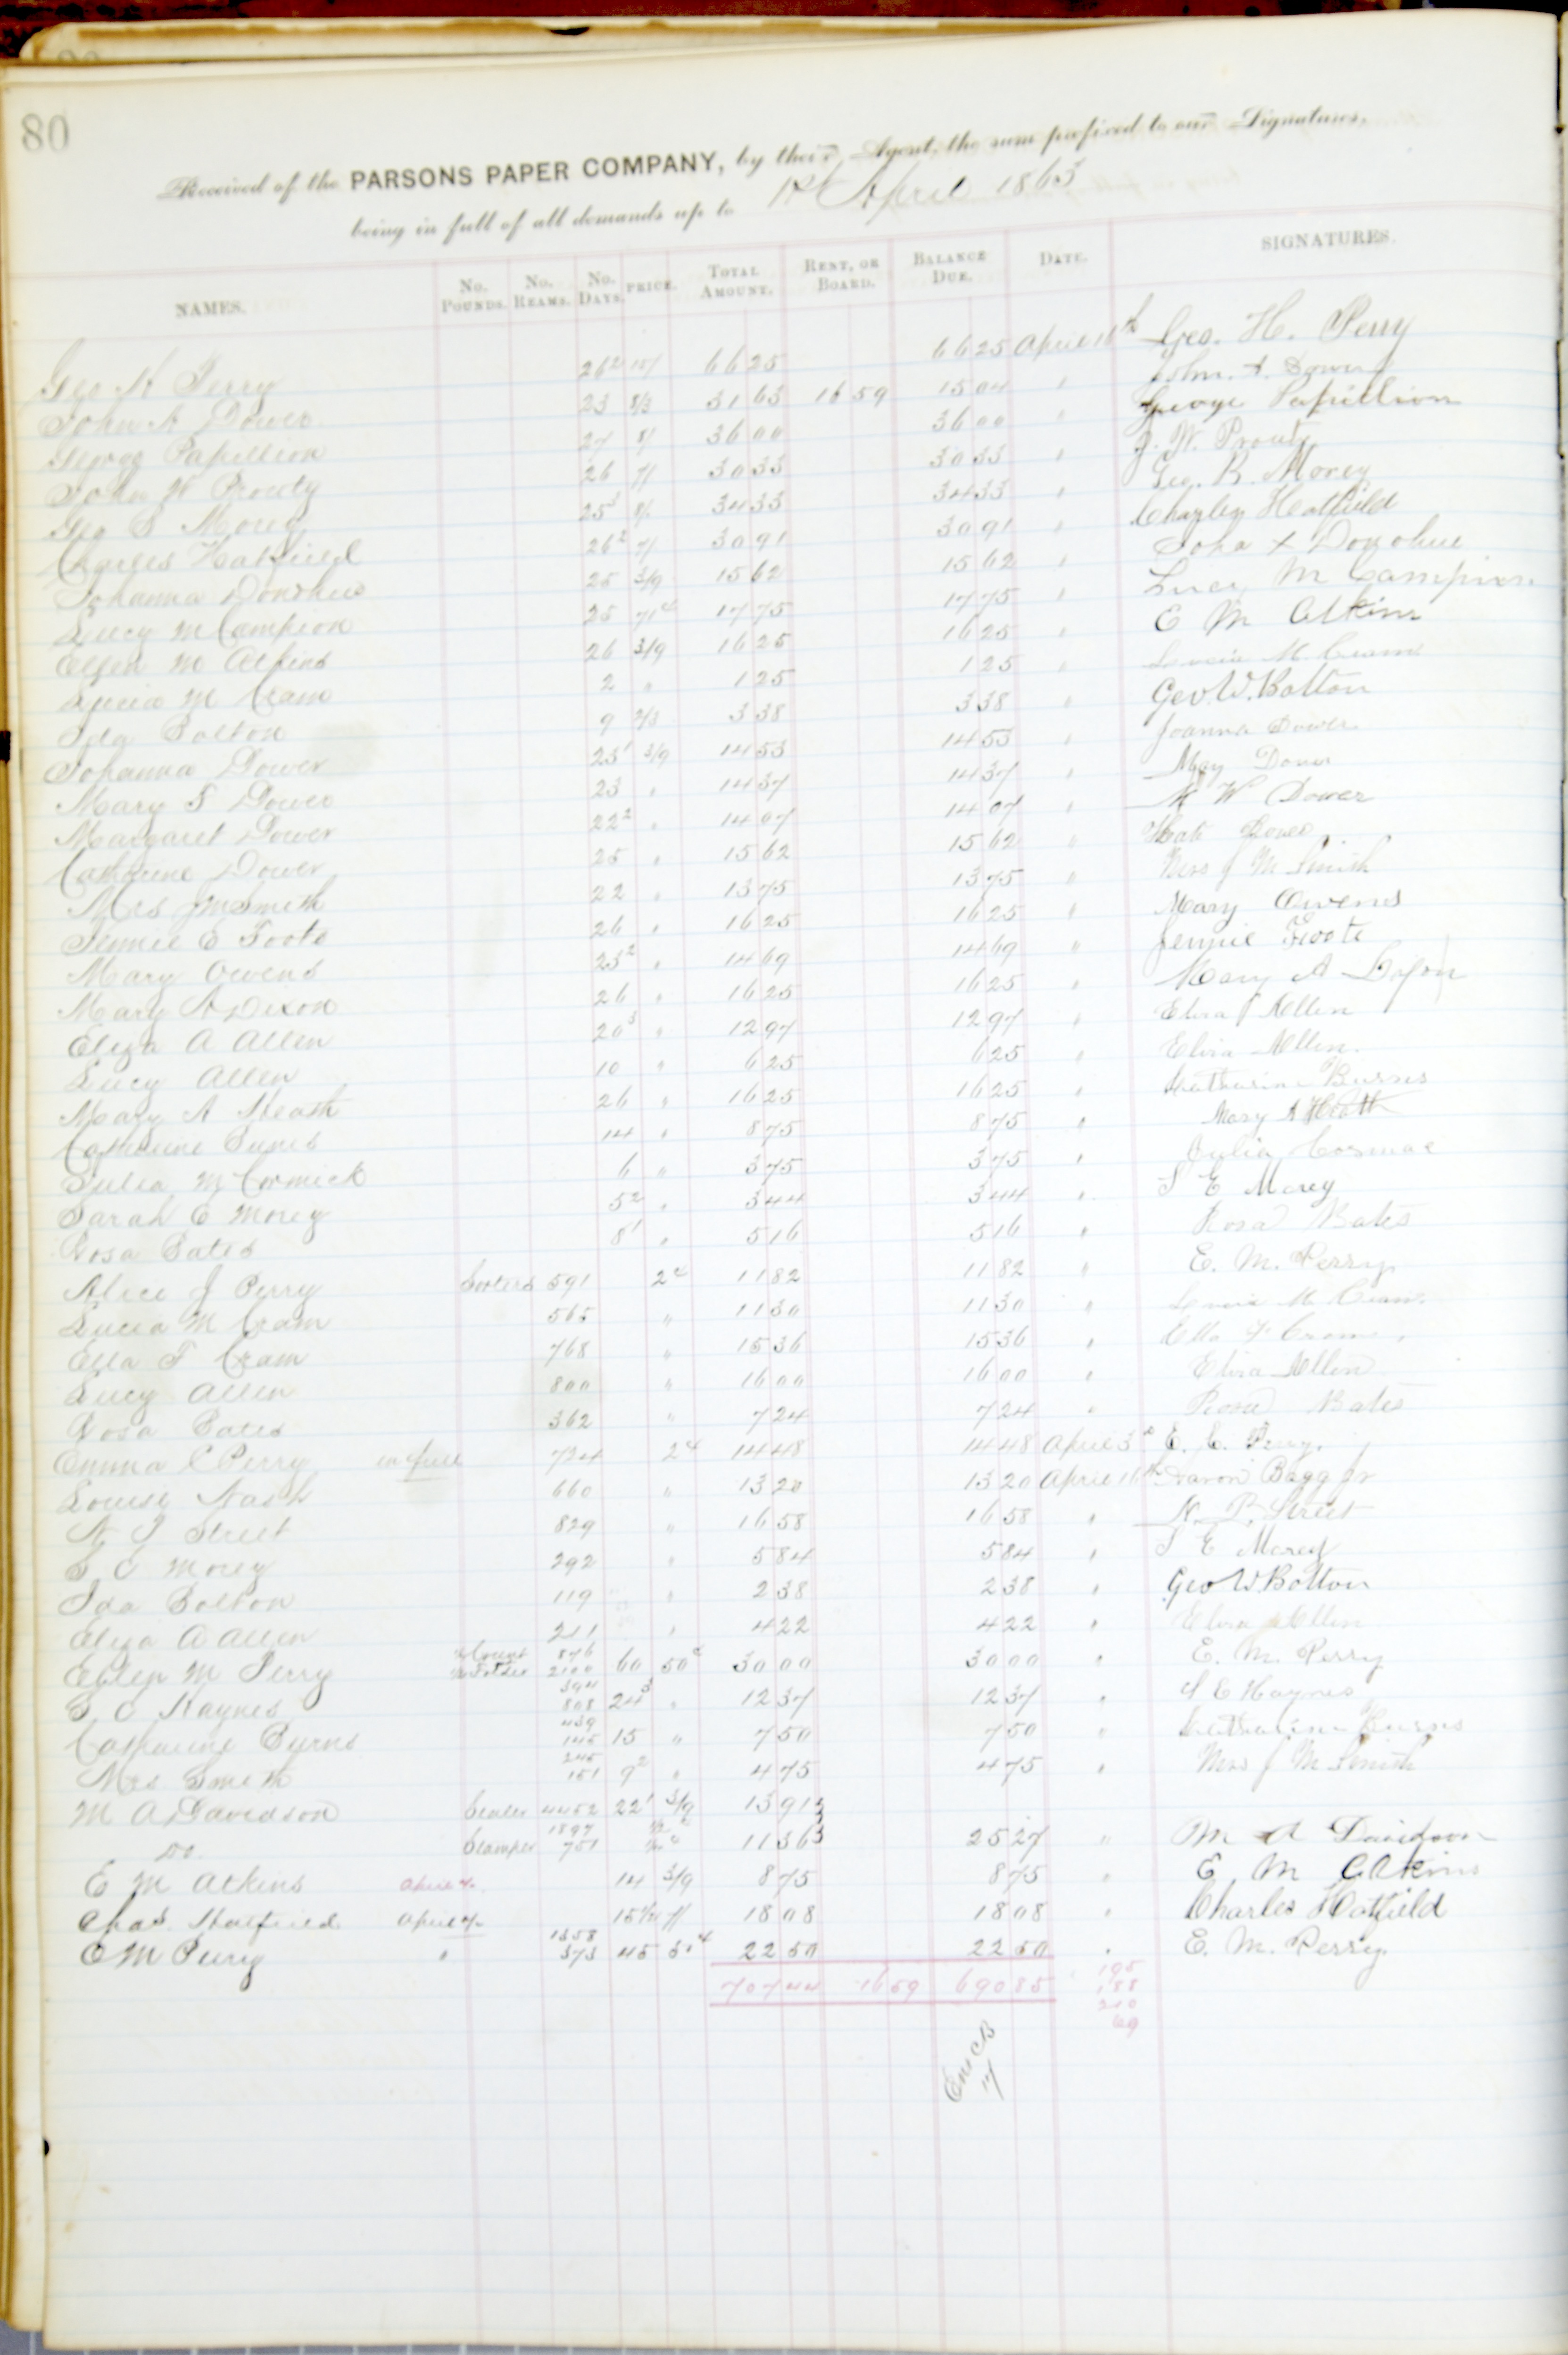 80
Received of the PARSONS PAPER COMPANY, by their Agent, the sum prefixed to our Signatures,
being in full of all demands up to 1st April 1863
NAMES. No. POUNDS. No. REAMS. No. DAYS. PRICE. TOTAL AMOUNT. RENT, OR BOARD. BALANCE DUE. DATE. SIGNATURES.
Geo H Perry 26² 15/ 66 25 66 25 April 16th Geo. H. Perry
John A Dower 23 8/3 31 63 16 59 15 04 " John A. Dower
George Papillion 27 8/ 36 00 36 00 " George Papillion
John W Prouty 26 7/ 30 33 30 33 " J. W. Prouty
Geo S Morey 25³ 8/ 34 33 34 33 " Geo. R. Morey
Charles Hatfield 26² 7/ 30 91 30 91 " Charles Hatfield
Johanna Donohue 25 3/9 15 62 15 62 " Joha x Donohue
Lucy M Campion 25 71¢ 17 75 17 75 " Lucy M Campion
Ellen M Atkins 26 3/9 16 25 16 25 " E M Atkins
Lucia M Cram 2 " 1 25 1 25 " Lucia M. Cram
Ida Bolton 9 2/3 3 38 3 38 " Geo. W. Bolton
Johanna Dower 23¹ 3/9 14 53 14 53 " Joanna Dower
Mary F Dower 23 " 14 37 14 37 " May Dower
Margaret Dower 22² " 14 07 14 07 " M W Dower
Catherine Dower 25 " 15 62 15 62 " Kate Dower
Mrs J M Smith 22 " 13 75 13 75 " Mrs J M Smith
Jennie E Foote 26 " 16 25 16 25 " Mary Owens
Mary Owens 23² " 14 69 14 69 " Jennie Foote
Mary A Dixon 26 " 16 25 16 25 " Mary A
Eliza A Allen 20³ " 12 97 12 97 " Elvira Allen
Lucy Allen 10 " 6 25 6 25 " Elvira Allen
Mary A Heath 26 " 16 25 16 25 " Catharine Burns
Catherine Burns 14 " 8 75 8 75 " Mary A Heath
Julia McCormick 6 " 3 75 3 75 " Julia Cormac
Sarah E Morey 5² " 3 44 3 44 " S E Morey
Rosa Bates 8¹ " 5 16 5 16 " Rosa Bates
Alice J Perry Sorters 591 2¢ 11 82 11 82 " E. M. Perry
Lucia M Cram 565 " 11 30 11 30 " Lucia M. Cram
Ella F Cram 768 " 15 36 15 36 " Ella F Cram
Lucy Allen 800 " 16 00 16 00 " Elvira Allen
Rosa Bates 362 " 7 24 7 24 " Rosa Bates
Emma C Perry in full 724 2¢ 14 48 14 48 April 3d E. C. Perry
Louise Nash 660 " 13 20 13 20 April 16th Aaron Bagg Jr
N P Street 829 " 16 58 16 58 " N. P. Street
S E Morey 292 " 5 84 5 84 " S E Morey
Ida Bolton 119 " 2 38 2 38 " Geo W Bolton
Eliza A Allen 211 " 4 22 4 22 " Elvira Allen
Ellen M Perry 876 2100 60 50¢ 30 00 30 00 " E. M. Perry
S E Haynes 394 808 24³ " 12 37 12 37 " S E Haynes
Catharine Byrns 439 145 15 " 7 50 7 50 " Catharine Burns
Mrs Smith 245 151 9² " 4 75 4 75 " Mrs J M Smith
M A Davidson Sealer 4452 22¹ 3/9 13 91
Do. Stamper 1897 751 11 36 25 27 " M A Davidson
E M Atkins April 14 3/9 8 75 8 75 " E M Atkins
Chas. Hatfield April 15½ 7/ 18 08 18 08 " Charles Hatfield
E M Perry " 1358 373 45 50¢ 22 50 22 50 " E. M. Perry
707 44 16 59 690 85 195
188
210
69